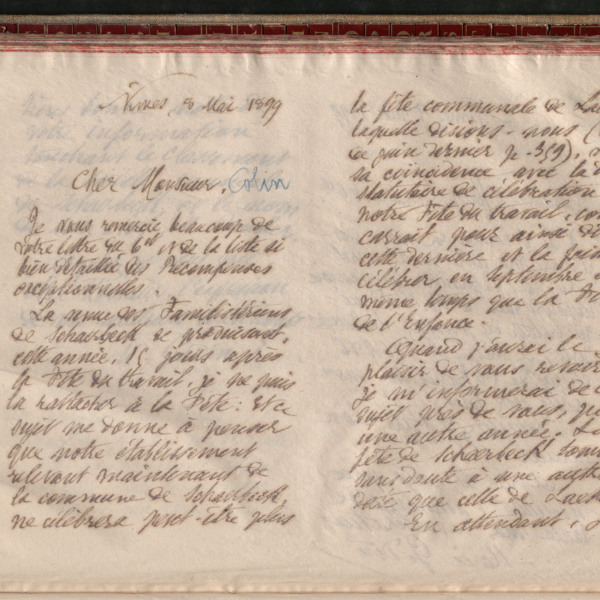 Nîmes, 8 Mai 1899
Cher Monsieur, Colin
Je vous remercie beaucoup de
votre lettre du 6 ct et de la liste si
bien détaillée des Récompenses
exceptionnelles.
La venue des Familistériens
de Schaerbeek se produisant,
cette année, 15 jours après
la Fête du travail, je ne puis
la rattacher à la Fête : et ce
sujet me donne à penser
que notre établissement
relevant maintenant de
la commune de Schaerbeek,
ne célèbrera peut-être plus
la fête communale de
laquelle disions-nous (
de juin dernier p. 359),
sa coïncidence avec la
statutaire de célébration
notre Fête du travail,
carrait pour ainsi
cette dernière et la
célébrer en septembre
même temps que la
de l'Enfance.
Quand j'aurai le
plaisir de vous revoir
je m'informerai de
sujet près de vous,
une autre année. La
fête de Schaerbeek
sans doute à une
date que celle de
En attendant,